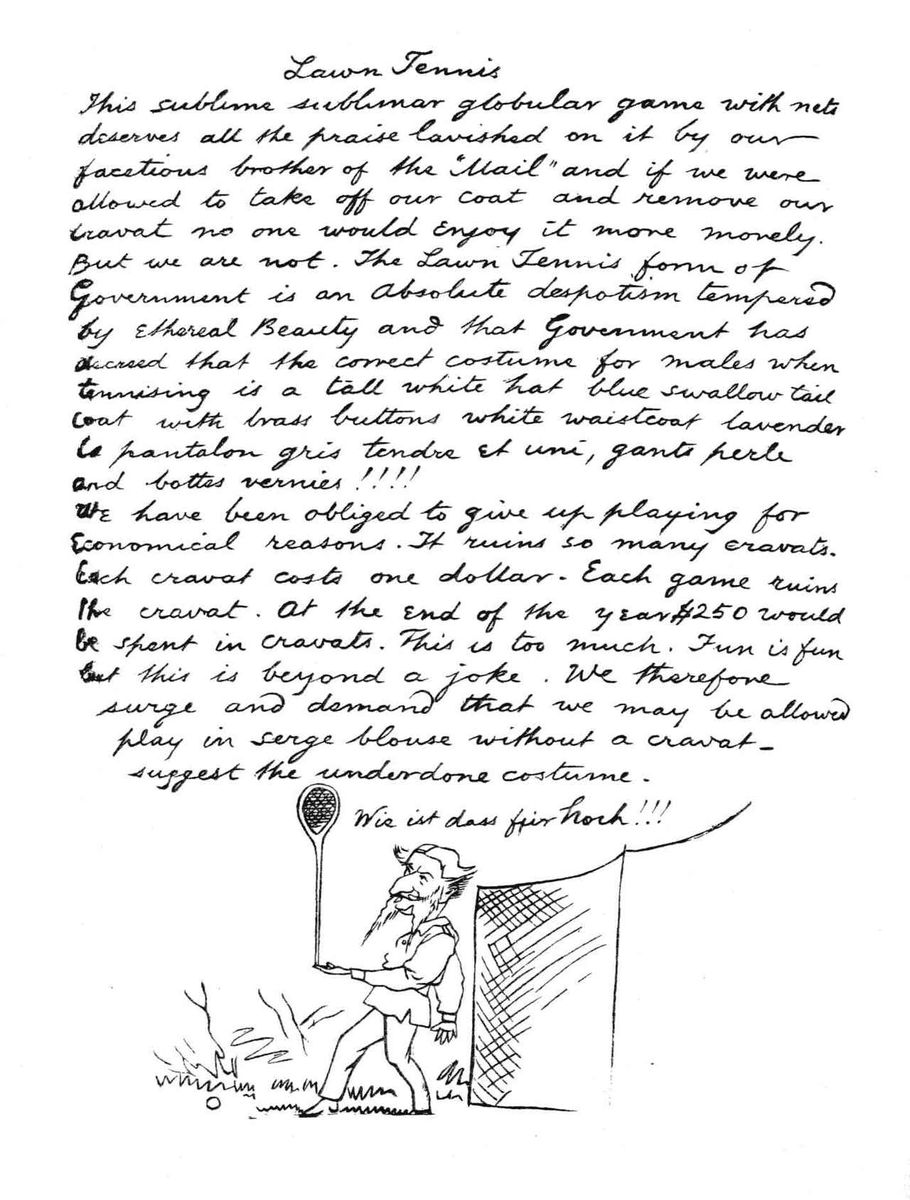 Lawn Tennis
This sublime sublunar globular game with nets
deserves all the praise lavished on it by our
facetious brother of the "Mail" and if we were
allowed to take off our coat and remove our
cravat no one would enjoy it more morely.
But we are not. The Lawn Tennis form of
Government is an Absolute despotism tempered
by Ethereal Beauty and that Government has
decreed that the correct costume for males when
tennising is a tall white hat blue swallow tail
Coat with brass buttons white waistcoat lavender
pantalon gris tendre et uni, gants perle
and bottes vernies !!!!
We have been obliged to give up playing for
Economical reasons. It ruins so many cravats.
Each cravat costs one dollar. Each game ruins
the cravat. At the end of the year $250 would
be spent in cravats. This is too much. Fun is fun
but this is beyond a joke. We therefore
surge and demand that we may be allowed
play in serge blouse without a cravat—
suggest the underdone costume.
Wie ist dass für hoch!!!